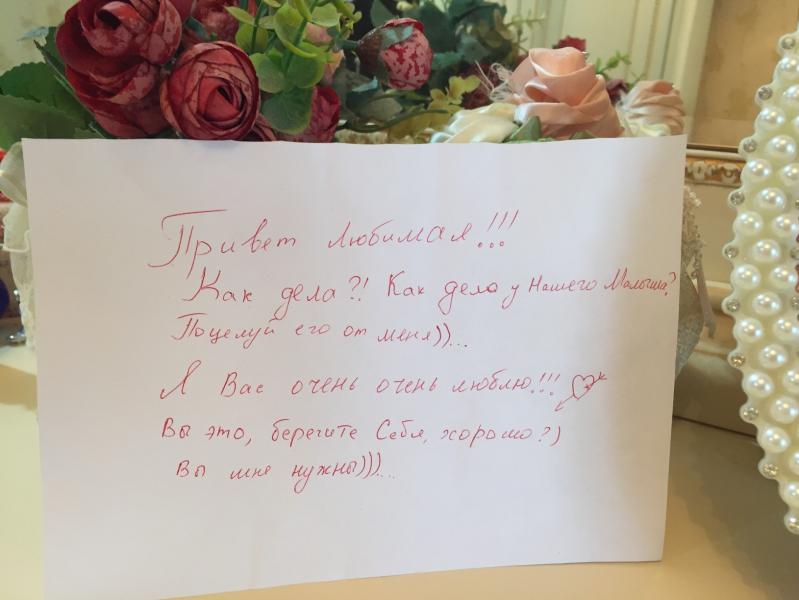 Привет любимая!!!
Как дела?! Как дела у Нашего Малыша?
Поцелуй его от меня))...
Я Вас очень очень люблю!!!
Вы это, берегите Себя, хорошо?)
Вы мне нужны)))...